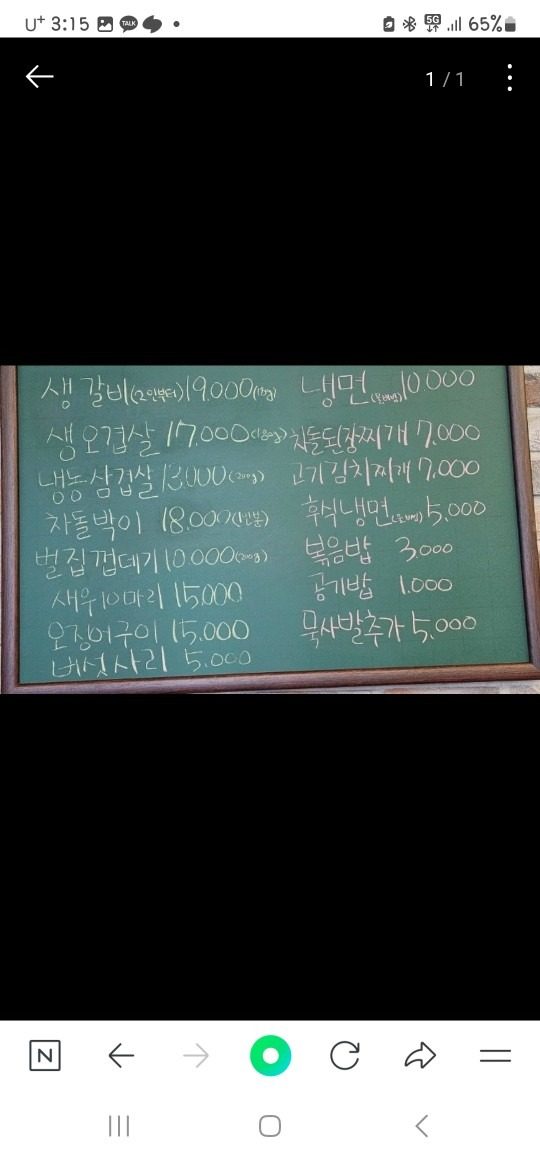 U+ 3:15 TALK 5G 65%
1 / 1
생 갈비(2인부터) 19,000
생 오겹살 17,000(180g)
냉동삼겹살 13,000(200g)
차돌박이 18,000(1인분)
벌집껍데기 10,000(200g)
새우10마리 15,000
오징어구이 15,000
버섯사리 5,000
냉면 10,000
차돌된장찌개 7,000
고기김치찌개 7,000
후식냉면 5,000
볶음밥 3,000
공기밥 1,000
묵사발추가 5,000
N